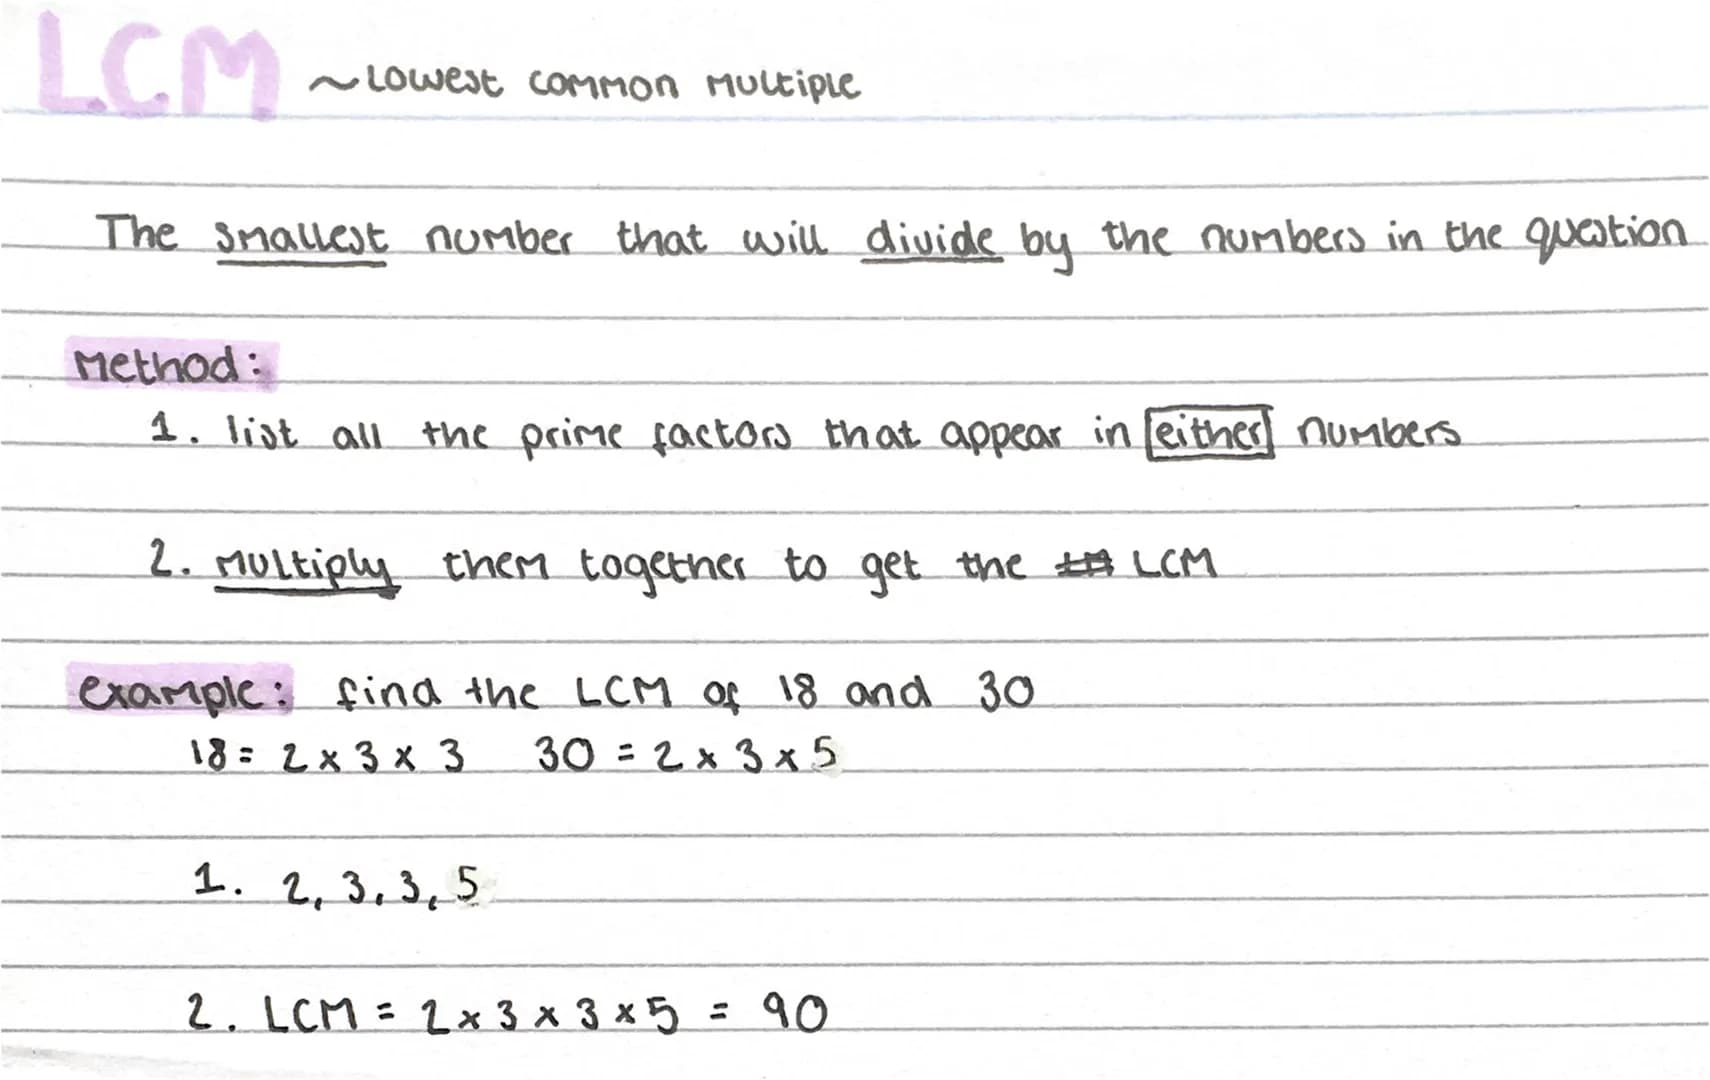 LCM ~ Lowest common multiple
The smallest number that will divide by the numbers in the question
Method:
1. list all the prime factors that appear in either numbers
2. Multiply them together to get the LCM
example: find the LCM of 18 and 30
18 = 2 x 3 x 3 30 = 2 x 3 x 5
1. 2, 3, 3, 5
2. LCM = 2 x 3 x 3 x 5 = 90